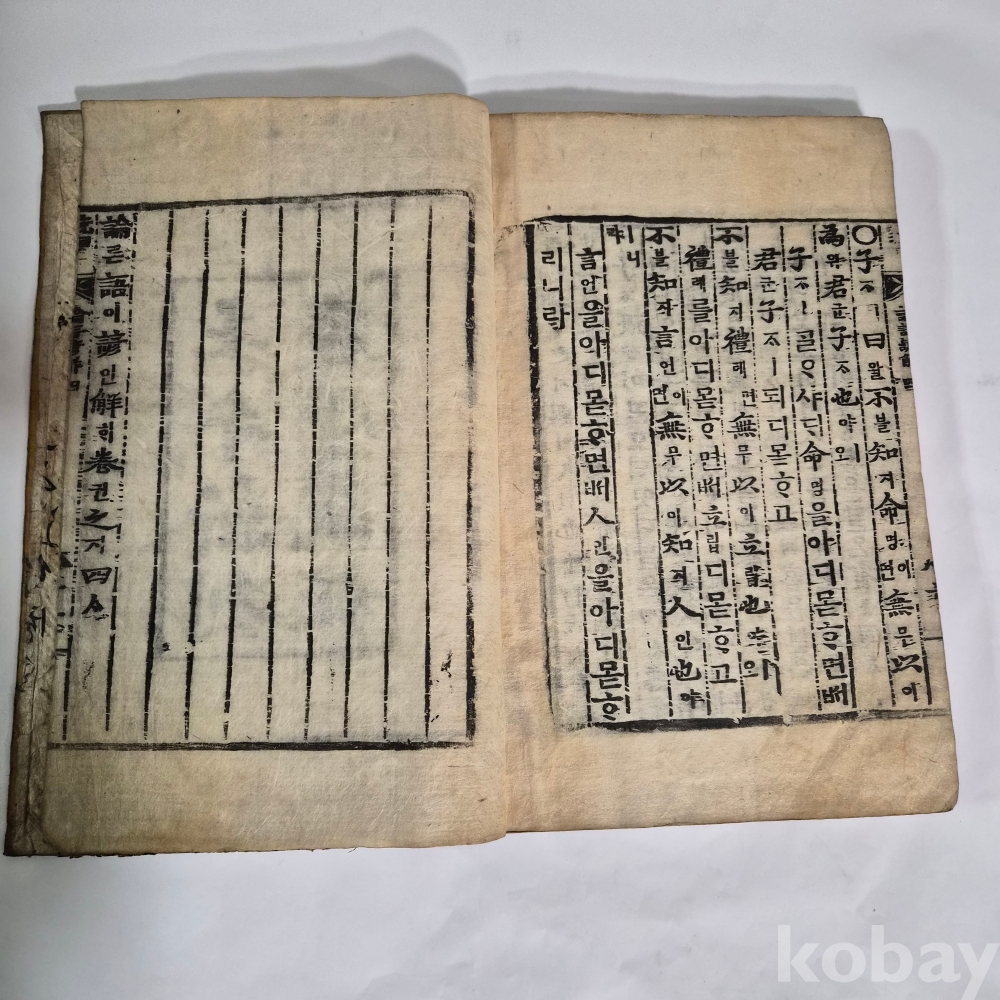 ○子ᄌᆞㅣ曰왈不블知지命명이면無무以이
為위君군子ᄌᆞ也야ㅣ오
子ᄌᆞㅣ골ᄋᆞ샤ᄃᆡ命명을아디몯ᄒᆞ면ᄡᅥ
君군子ᄌᆞㅣ되디몯ᄒᆞ고
不블知지禮례면無무以이立립也야ㅣ오
禮례를아디몯ᄒᆞ면ᄡᅥ立립디몯ᄒᆞ고
不블知지言언이면無무以이知지人인也야
ㅣ니라
言언을아디몯ᄒᆞ면ᄡᅥ人인을아디몯ᄒᆞ
리니라
論론語어諺언解ᄒᆡ卷권之지四ᄉᆞ
kobay